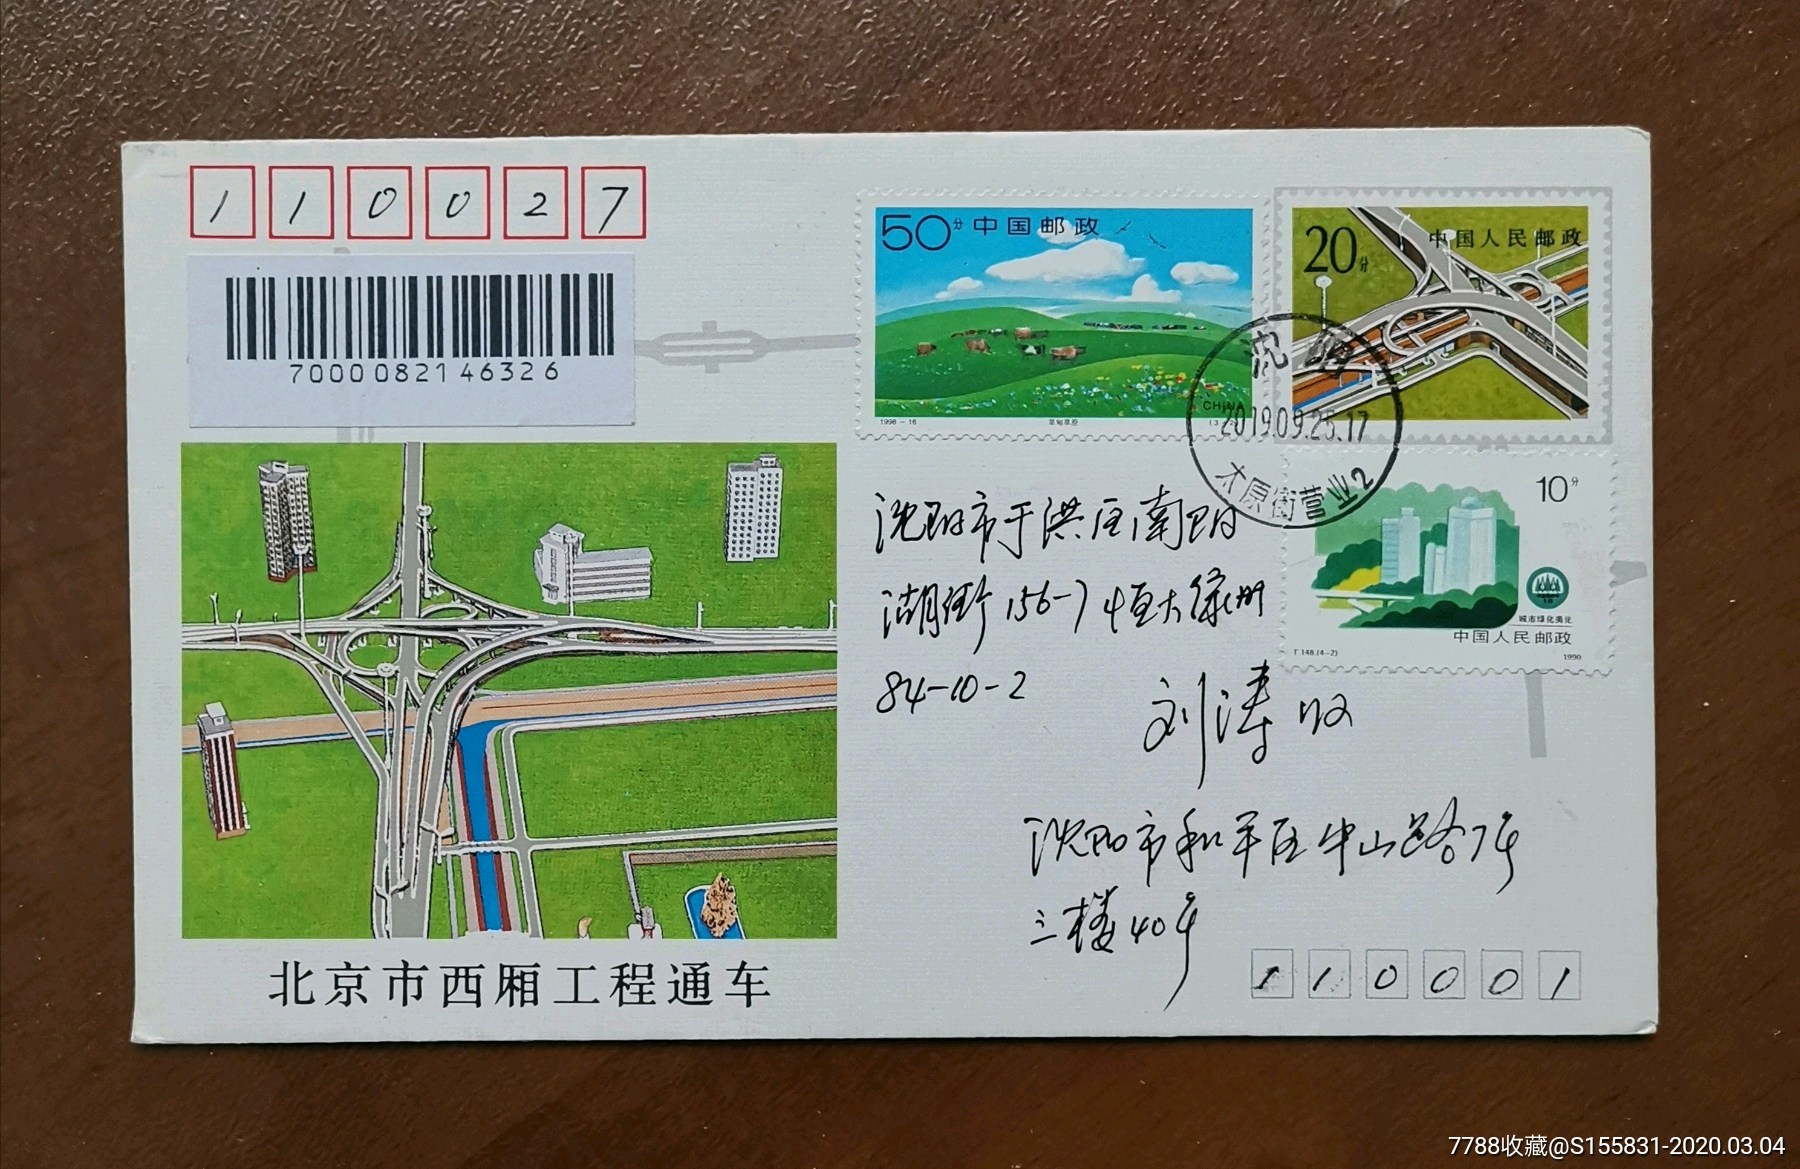 110027
7000082146326
50分 中国邮政
CHINA
1998-16
草甸草原
20分
中国人民邮政
沈阳
2019.09.25.17
太原街营业2
10分
城市绿化美化
中国人民邮政
T.148.(4-2)
1990
沈阳市于洪区南阳
湖街156-7恒大绿洲
84-10-2
刘涛收
沈阳市和平区中山路7号
三楼40号
110001
北京市西厢工程通车
7788收藏@S155831-2020.03.04